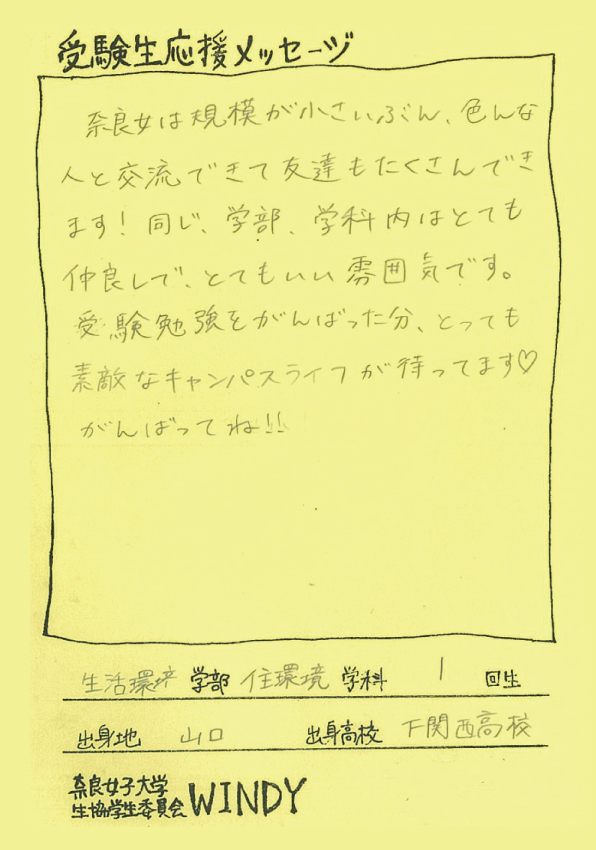 受験生応援メッセージ
奈良女は規模が小さいぶん、色んな
人と交流できて友達もたくさんでき
ます！同じ、学部、学科内はとても
仲良しで、とてもいい雰囲気です。
受験勉強をがんばった分、とっても
素敵なキャンパスライフが待ってます♡
がんばってね!!
生活環境 学部 住環境 学科 1 回生
出身地 山口 出身高校 下関西高校
奈良女子大学
生協学生委員会 WINDY